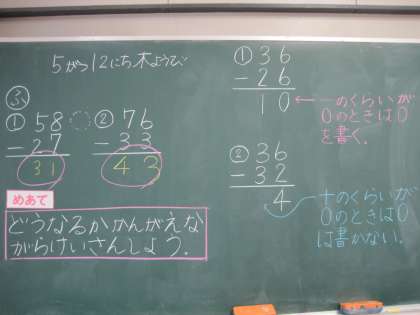 5がつ12にち木ようび
ふ
① 58
- 27
31
② 76
- 33
43
めあて
どうなるかかんがえな
がらけいさんしよう.
① 36
- 26
10
←一のくらいが
0のときは0
を書く.
② 36
- 32
4
十のくらいが
0のときは0
は書かない.